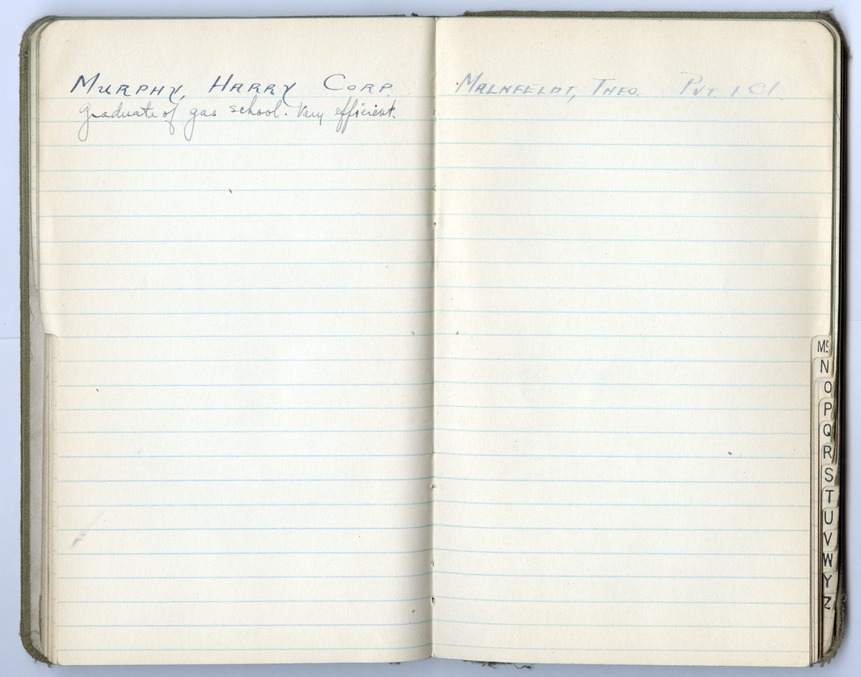 MURPHY, HARRY CORP.
graduate of gas school. Very efficient.
MALNFELDT, THEO. PVT. 1 Cl.
Mc
N
O
P
Q
R
S
T
U
V
W
Y
Z